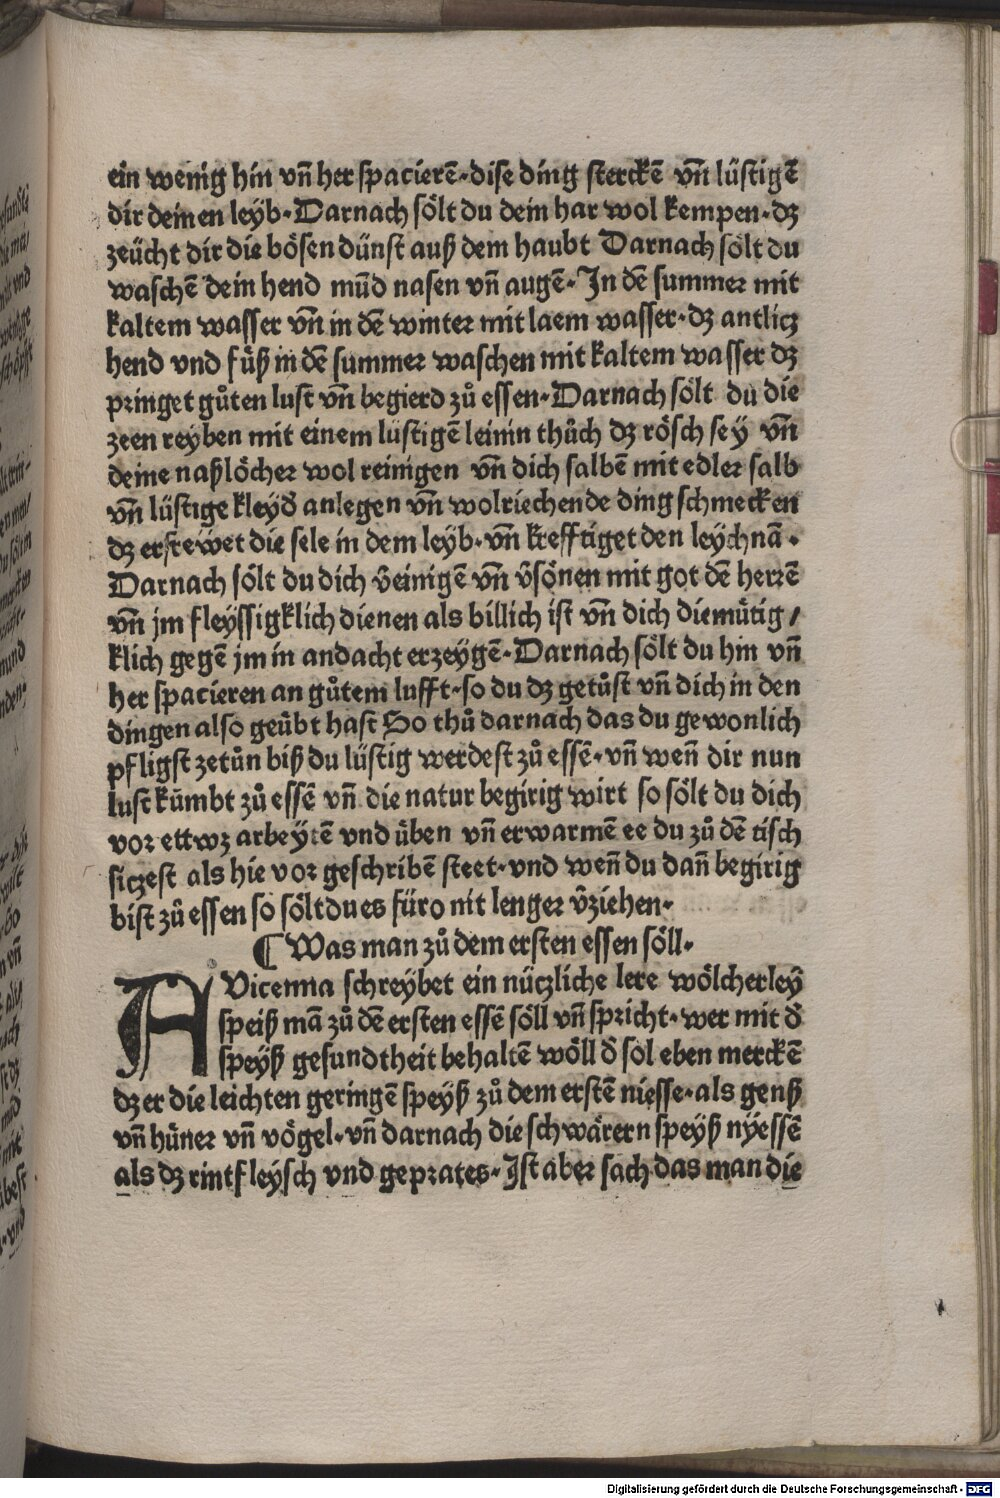 ein wenig hin vn̄ her spacierē·dise ding sterckē vn̄ lüstigē
dir deinen leyb·Darnach sölt du dein har wol kempen·dꝫ
zeücht dir die bösen dünst auß dem haubt Darnach sölt du
waschē dein hend mūd nasen vn̄ augē·In dē summer mit
kaltem wasser vn̄ in dē winter mit laem wasser·dꝫ antlicz
hend vnd fůß in dē summer waschen mit kaltem wasser dꝫ
pringet gůten lust vn̄ begierd zů essen·Darnach sölt du die
zeen reyben mit einem lüstigē leinin thůch dꝫ rösch sey vn̄
deine naßlöcher wol reinigen vn̄ dich salbē mit edler salb
vn̄ lüstige kleyd̄ anlegen vn̄ wolriechende ding schmecken
dꝫ erfrewet die sele in dem leyb·vn̄ krefftiget den leychnā·
Darnach sölt du dich v̄einigē vn̄ v̄sönen mit got dē herrē
vn̄ jm fleyssigklich dienen als billich ist vn̄ dich diemütig/
klich gegē jm in andacht erzeygē·Darnach sölt du hin vn̄
her spacieren an gůtem lufft·so du dꝫ getůst vn̄ dich in den
dingen also geübt hast So thů darnach das du gewonlich
pfligst zetůn biß du lüstig werdest zů essē·vn̄ wen̄ dir nun
lust kūmbt zů essē vn̄ die natur begirig wirt so sölt du dich
vor ettwꝫ arbeytē vnd üben vn̄ erwarmē ee du zů dē tisch
siczest als hie vor geschribē steet·vnd wen̄ du dan̄ begirig
bist zů essen so sölt du es füro nit lenger v̄ziehen·
¶ Was man zů dem ersten essen söll·
AVicenna schreybet ein nüczliche lere wölcherley
speiß mā zů dē ersten essē söll vn̄ spricht·wer mit d̄
speyß gesundtheit behaltē wöll d̄ sol eben merckē
dꝫ er die leichten geringē speyß zů dem erstē niesse·als genß
vn̄ hüner vn̄ vögel·vn̄ darnach die schwärern speyß nyessē
als dꝫ rintfleysch vnd geprates·Ist aber sach das man die
Digitalisierung gefördert durch die Deutsche Forschungsgemeinschaft - DFG